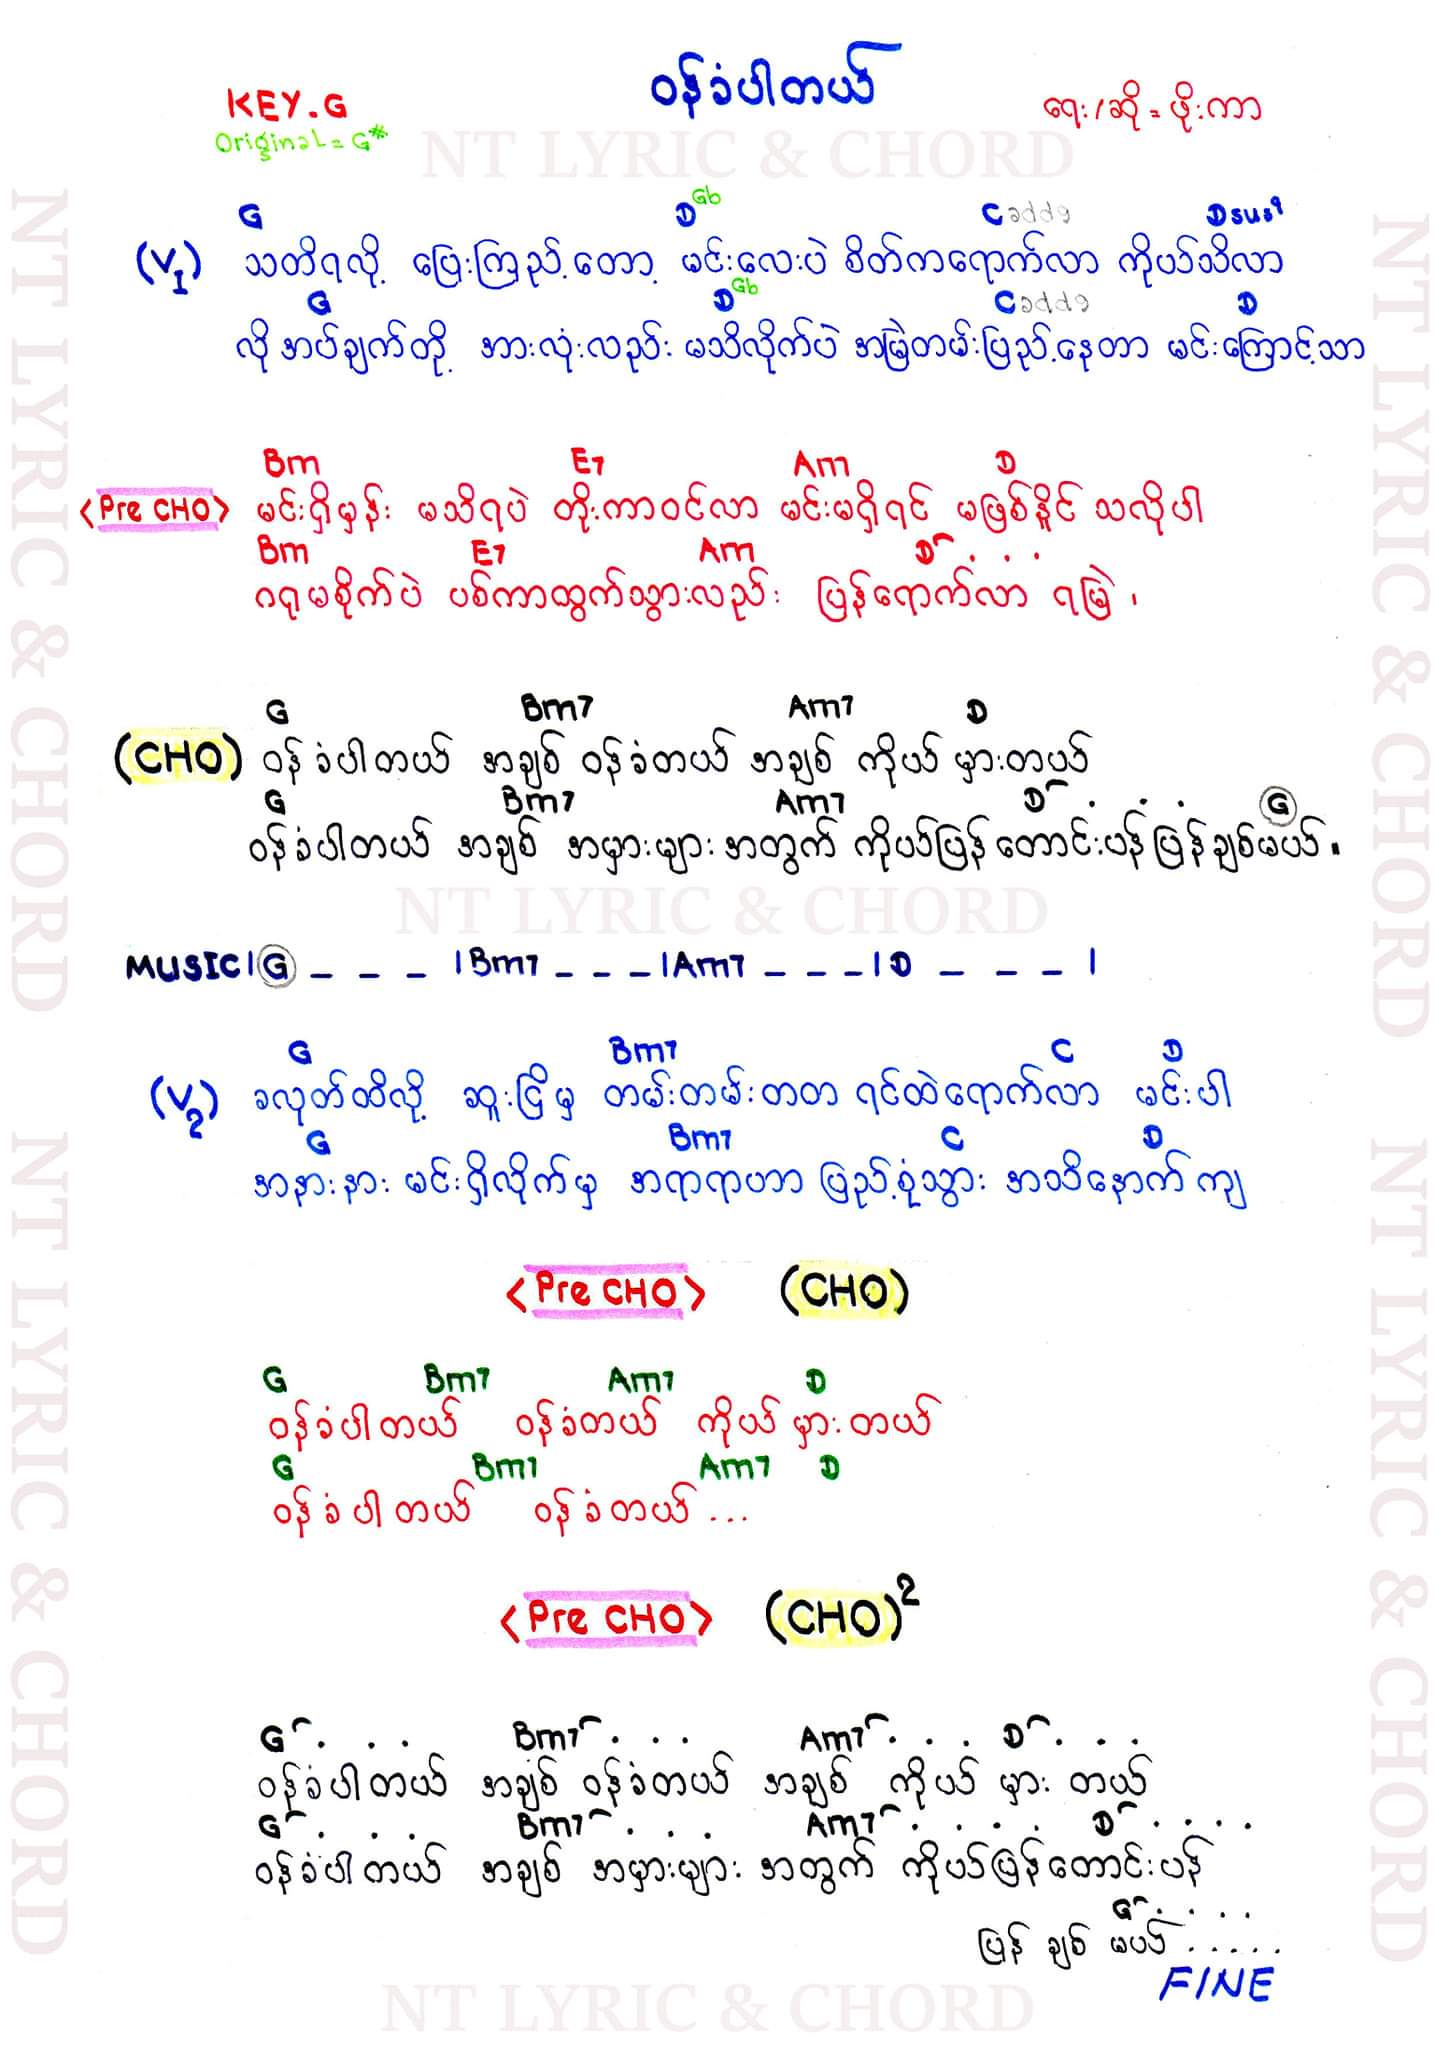 ဝန်ခံပါတယ်
KEY.G
ရေး/ဆို = ဖိုးကာ
Original = G#
NT LYRIC & CHORD
G D Gb Cadd9 Dsus9
(V1) သတိရလို့ ပြေးကြည့်တော့ မင်းလေးပဲ စိတ်ကရောက်လာ ကိုယ်သိလာ
G D Gb Cadd9 D
လိုအပ်ချက်တို့ အားလုံးလည်း မသိလိုက်ပဲ အမြဲတမ်းပြည့်နေတာ မင်းကြောင့်သာ
Bm E7 Am D
<Pre CHO> မင်းရှိမှန်း မသိရပဲ တိုးကာဝင်လာ မင်းမရှိရင် မဖြစ်နိုင် သလိုပါ
Bm E7 Am D . . .
ဂရုမစိုက်ပဲ ပစ်ကာထွက်သွားလည်း ပြန်ရောက်လာ ရမြဲ ၊
G Bm7 Am7 D
(CHO) ဝန်ခံပါတယ် အချစ် ဝန်ခံတယ် အချစ် ကိုယ် မှားတယ်
G Bm7 Am7 D . . . G
ဝန်ခံပါတယ် အချစ် အမှားများအတွက် ကိုယ်ပြန်တောင်းပန် ပြန်ချစ်မယ်။
NT LYRIC & CHORD
MUSIC | G _ _ _ | Bm7 _ _ _ | Am7 _ _ _ | D _ _ _ |
G Bm7 C D
(V2) ခလုတ်ထိလို့ ဆူးငြိမှ တမ်းတမ်းတတ ရင်ထဲရောက်လာ မင်းပါ
G Bm7 C D
အနားနား မင်းရှိလိုက်မှ အရာရာဟာ ပြည့်စုံသွား အသိနောက်ကျ
<Pre CHO> (CHO)
G Bm7 Am7 D
ဝန်ခံပါတယ် ဝန်ခံတယ် ကိုယ် မှားတယ်
G Bm7 Am7 D
ဝန်ခံပါတယ် ဝန်ခံတယ် ...
<Pre CHO> (CHO)2
G . . . Bm7 . . . Am7 . . . D . . .
ဝန်ခံပါတယ် အချစ် ဝန်ခံတယ် အချစ် ကိုယ် မှား တယ်
G . . . Bm7 . . . Am7 . . . . D . . . .
ဝန်ခံပါတယ် အချစ် အမှားများ အတွက် ကိုယ်ပြန်တောင်းပန်
G . . . .
ပြန် ချစ် မယ် .....
FINE
NT LYRIC & CHORD
NT LYRIC & CHORD
NT LYRIC & CHORD
NT LYRIC & CHORD
NT LYRIC & CHORD